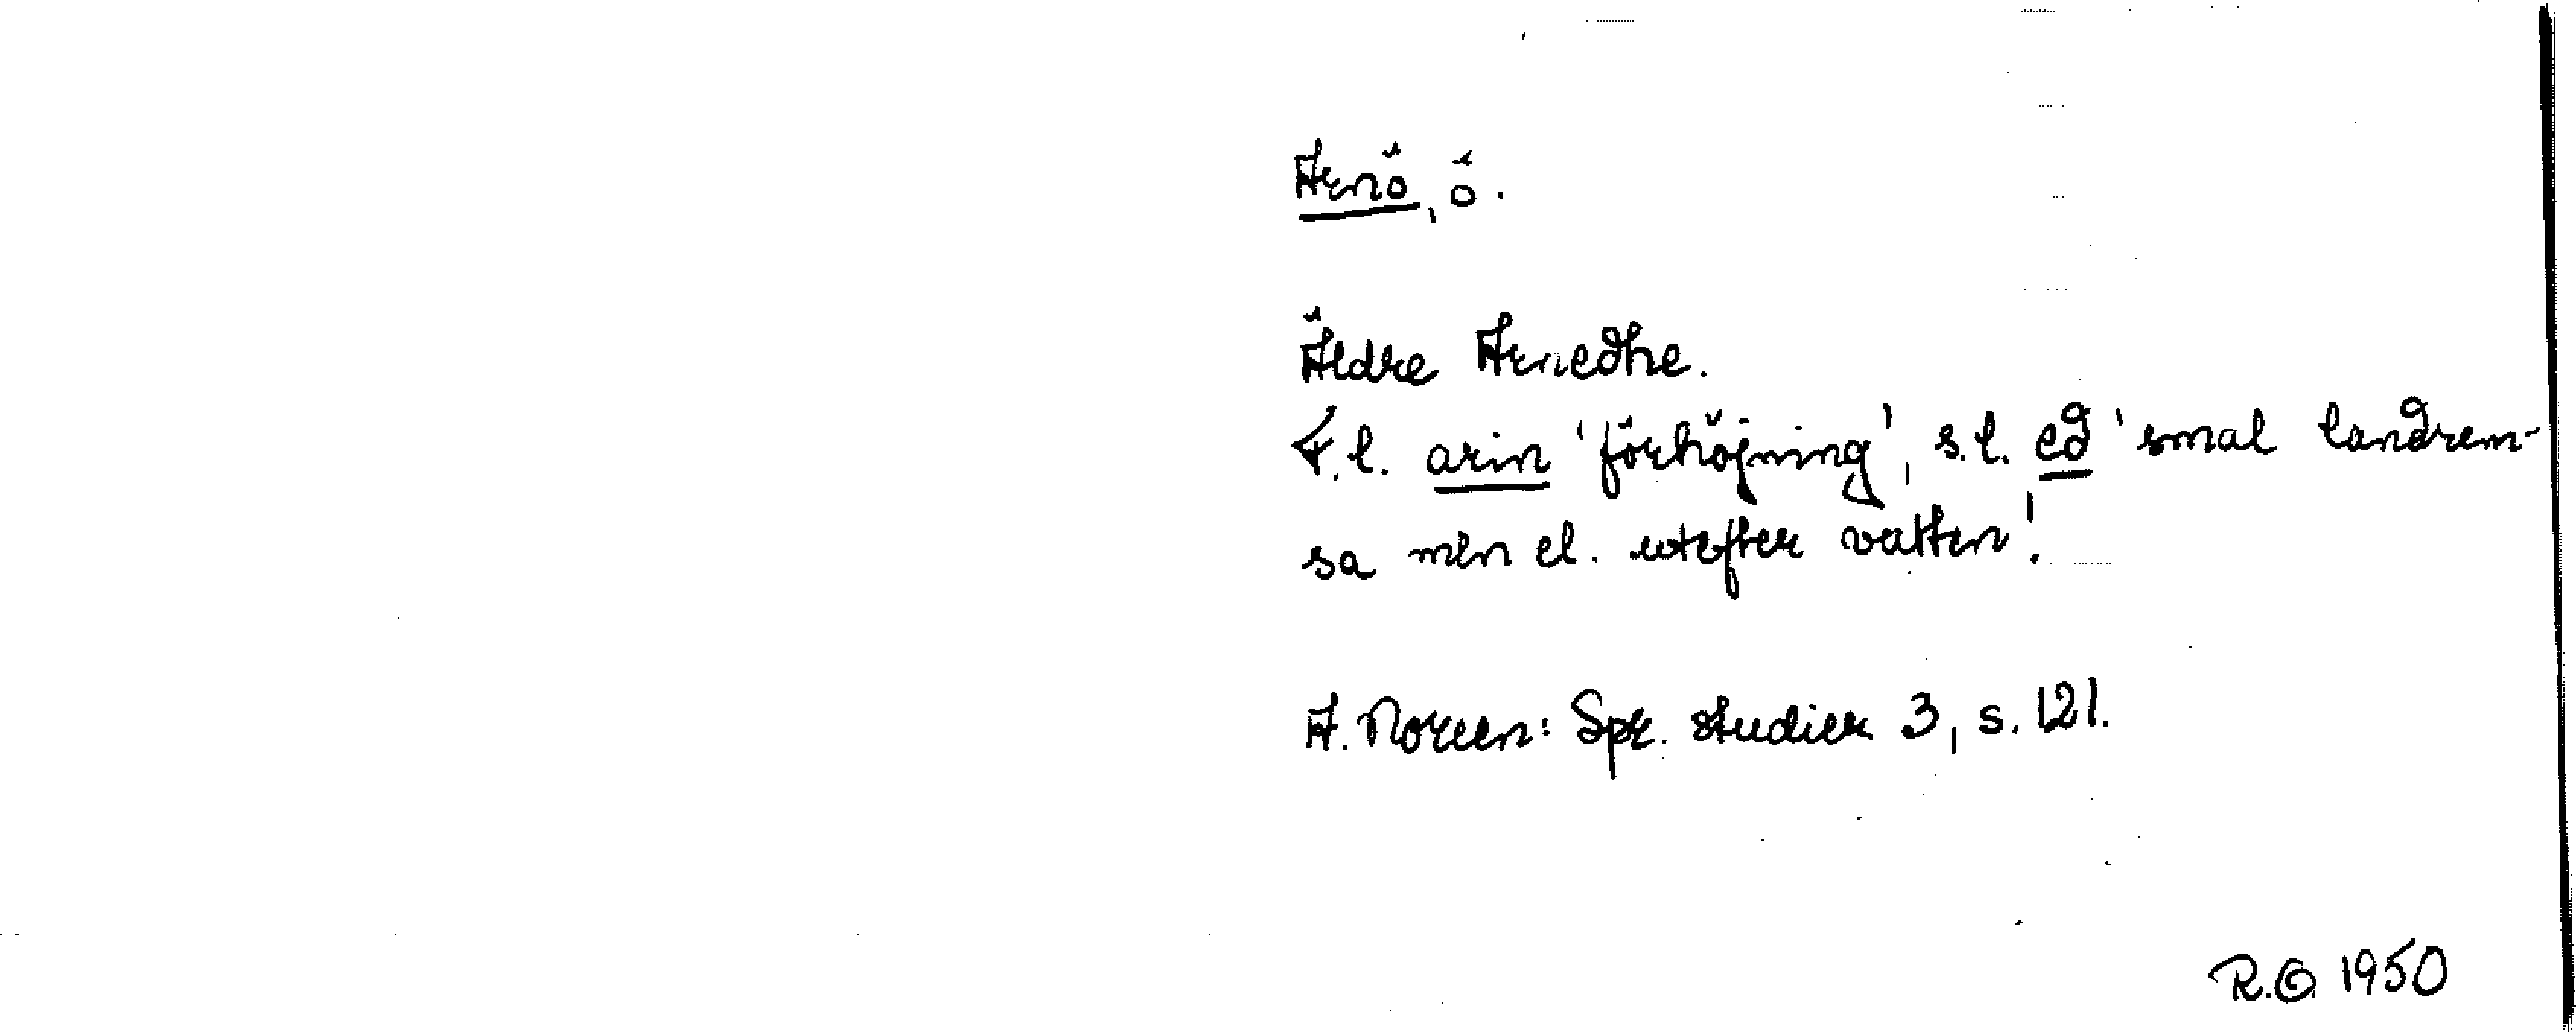 Arnö, ö.
Äldre Arnedhe.
F.l. arin 'förhöjning', s.l. ed 'smal landrem-
sa mln el. utefter vatten'.
A. Noreen: Spr. studier 3, s. 121.
R.G 1950